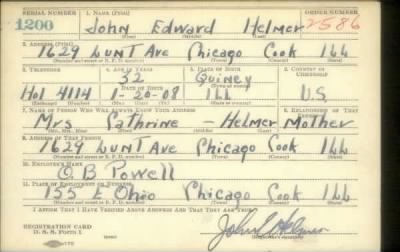 SERIAL NUMBER 1. NAME (Print) ORDER NUMBER
1200 John Edward Helmer 2586
(First) (Middle) (Last)
2. ADDRESS (Print)
1629 Lunt Ave Chicago Cook Ill
(Number and street or R. F. D. number) (Town) (County) (State)
3. TELEPHONE 4. AGE IN YEARS 5. PLACE OF BIRTH 6. COUNTRY OF CITIZENSHIP
32 Quincy
Hol 4114 DATE OF BIRTH
1-20-08 Ill U.S
7. NAME OF PERSON WHO WILL ALWAYS KNOW YOUR ADDRESS 8. RELATIONSHIP OF THAT PERSON
Mrs Cathrine - Helmer Mother
(Mr., Mrs., Miss) (First) (Middle) (Last)
9. ADDRESS OF THAT PERSON
1629 Lunt Ave Chicago Cook Ill
(Number and street or R. F. D. number) (Town) (County) (State)
10. EMPLOYER'S NAME
O. B Powell
11. PLACE OF EMPLOYMENT OR BUSINESS
155 E Ohio Chicago Cook Ill
(Number and street or R. F. D. number) (Town) (County) (State)
I AFFIRM THAT I HAVE VERIFIED ABOVE ANSWERS AND THAT THEY ARE TRUE.
REGISTRATION CARD
D. S. S. Form 1
John E Helmer